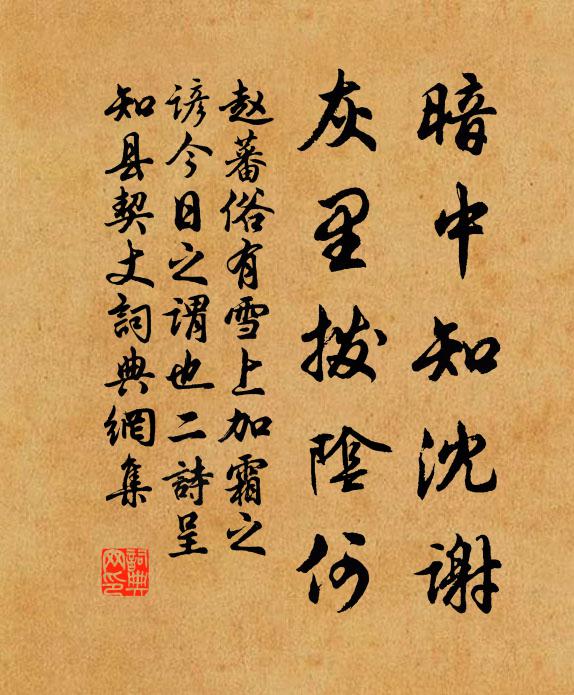 暗中知沈谢
灰里拨陰何
赵蕃俗有雪上加霜之
谚今日之谓也二詩呈
知县契丈詞典網集
詞典网印